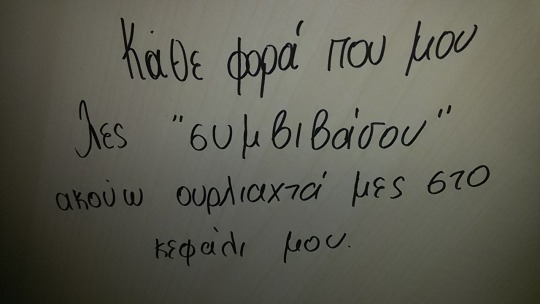 Κάθε φορά που μου
λες "συμβιβάσου"
ακούω ουρλιαχτά μες στο
κεφάλι μου.